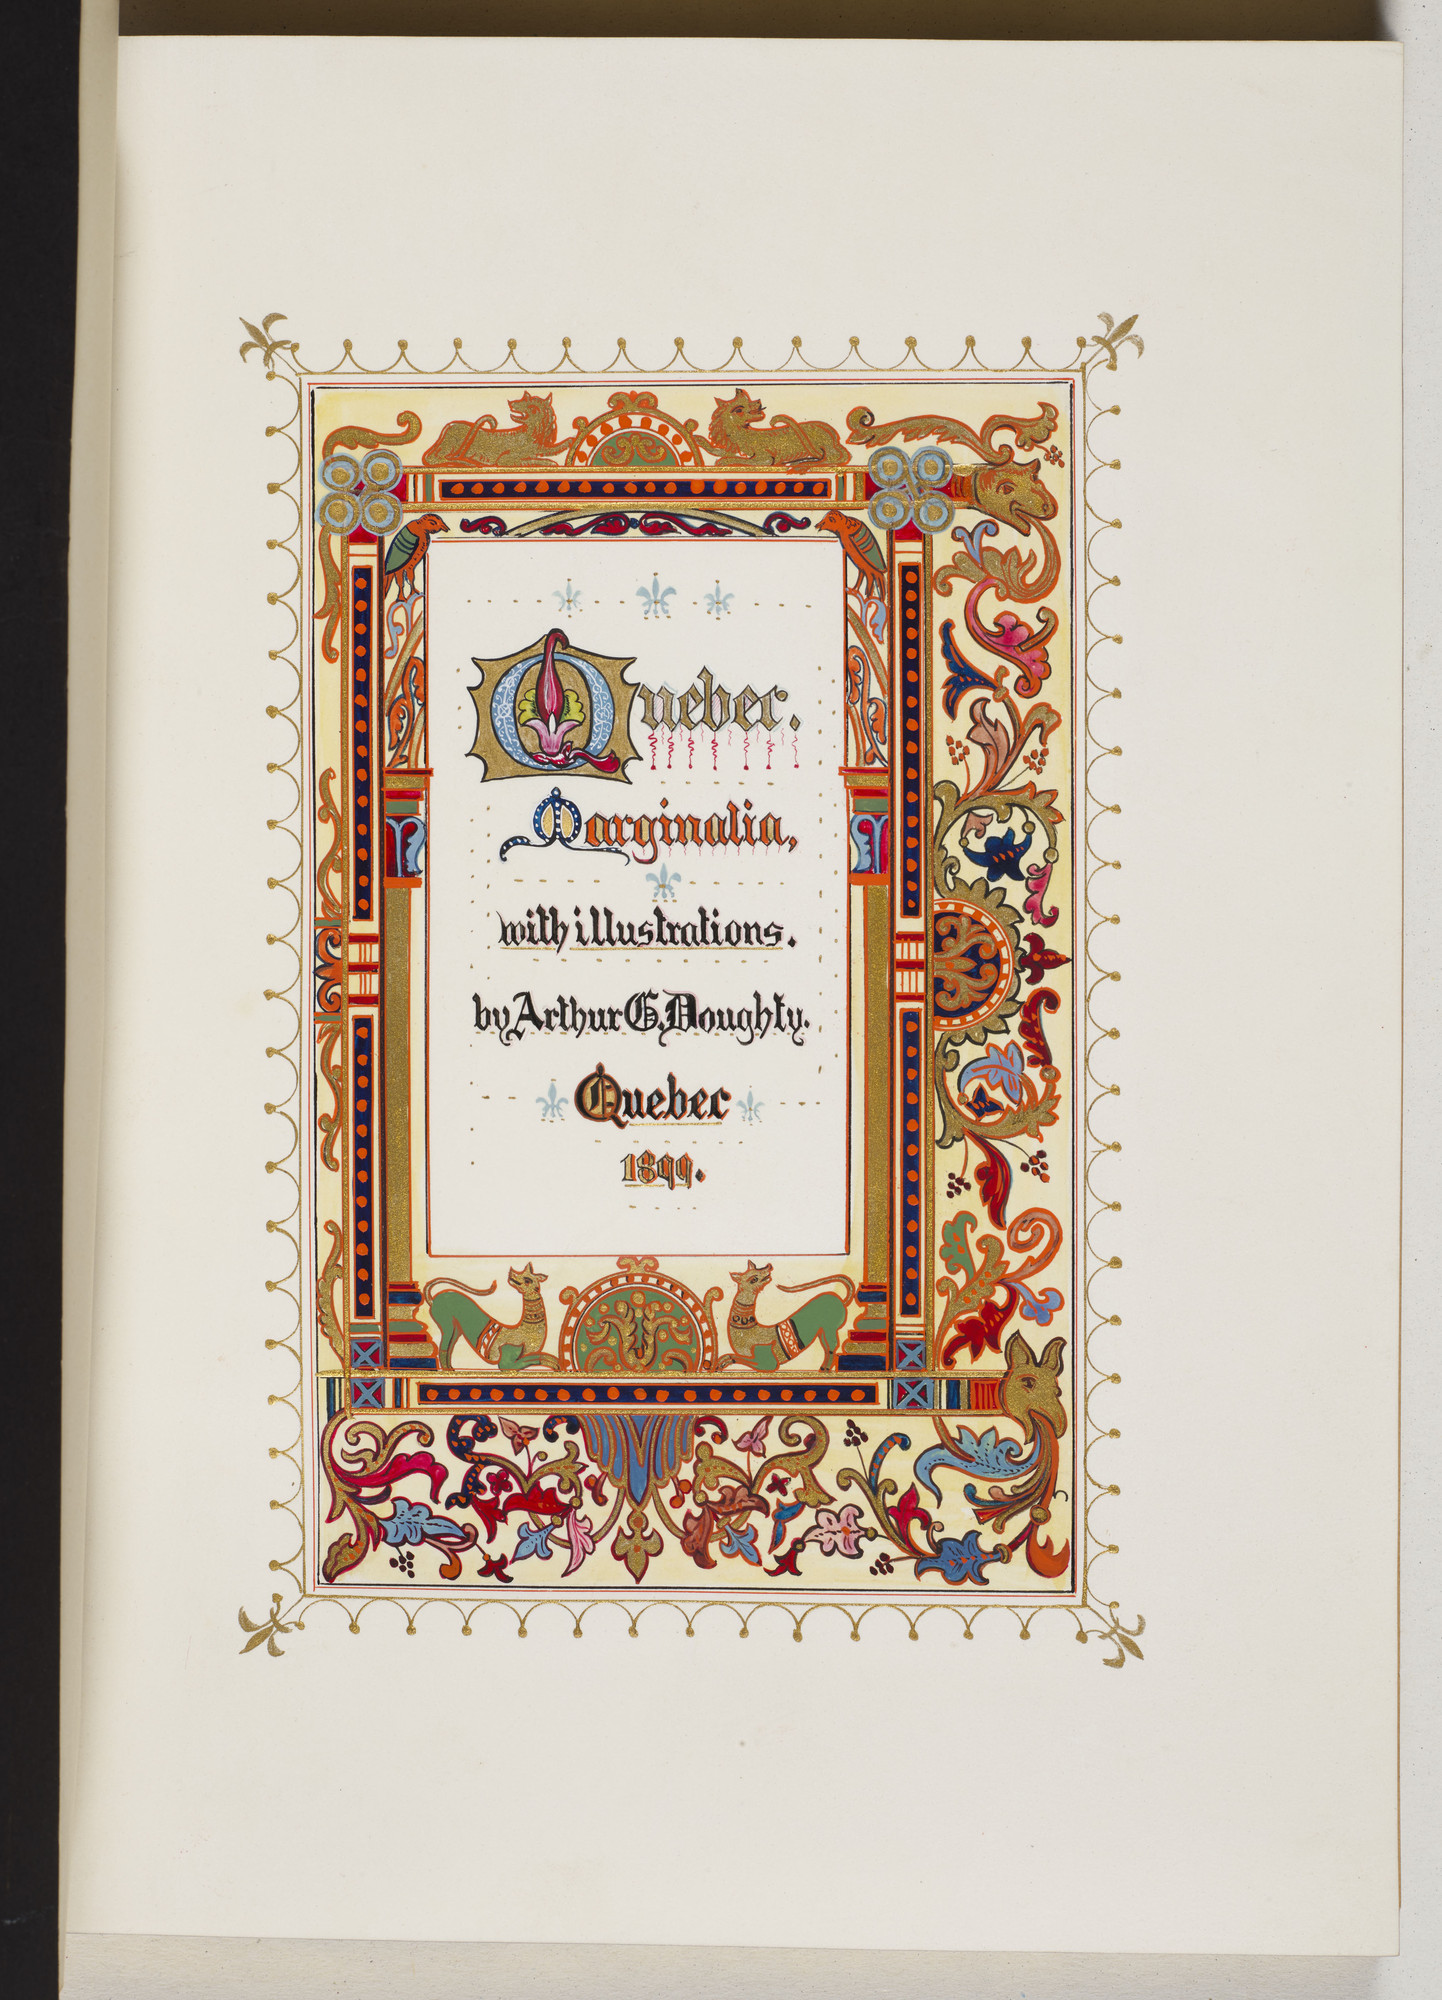 Quebec.
Marginalia,
with illustrations.
by Arthur G. Doughty.
Quebec
1899.